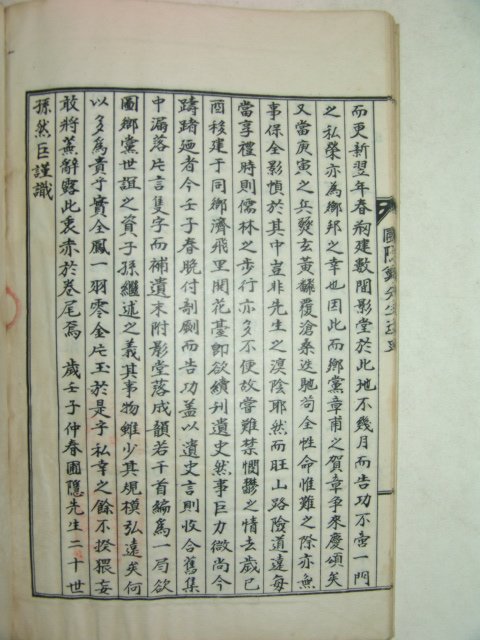 而更新翌年春刱建數間影堂於此地不幾月而告功不啻一門
之私榮亦為鄉邦之幸也因此而鄉黨章甫之賀章爭來慶頌矣
又當庚寅之兵燹玄黃飜覆滄桑迭馳苟全性命惟難之際亦無
事保全影幀於其中豈非先生之漠陰耶然而旺山路險道遠每
當享禮時則儒林之步行亦多不便故嘗難禁憫鬱之情去歲己
酉移建于同鄉濟飛里開花臺卽欲續刋遺史然事巨力微尚今
躊躇廼者今壬子春晩付剞劂而告功盖以遺史言則收合舊集
中漏落片言隻字而補遺末附影堂落成韻若干首編為一局欲
圖鄉黨世誼之資子孫繼述之義其事物雖少其規模弘遠矣何
以多為貴乎實全鳳一羽零金片玉於是乎私幸之餘不揆猥妄
敢將蕪辭畧此衷赤於卷尾焉　歲壬子仲春圃隱先生二十世
孫然巨謹識
圃隱鄭先生